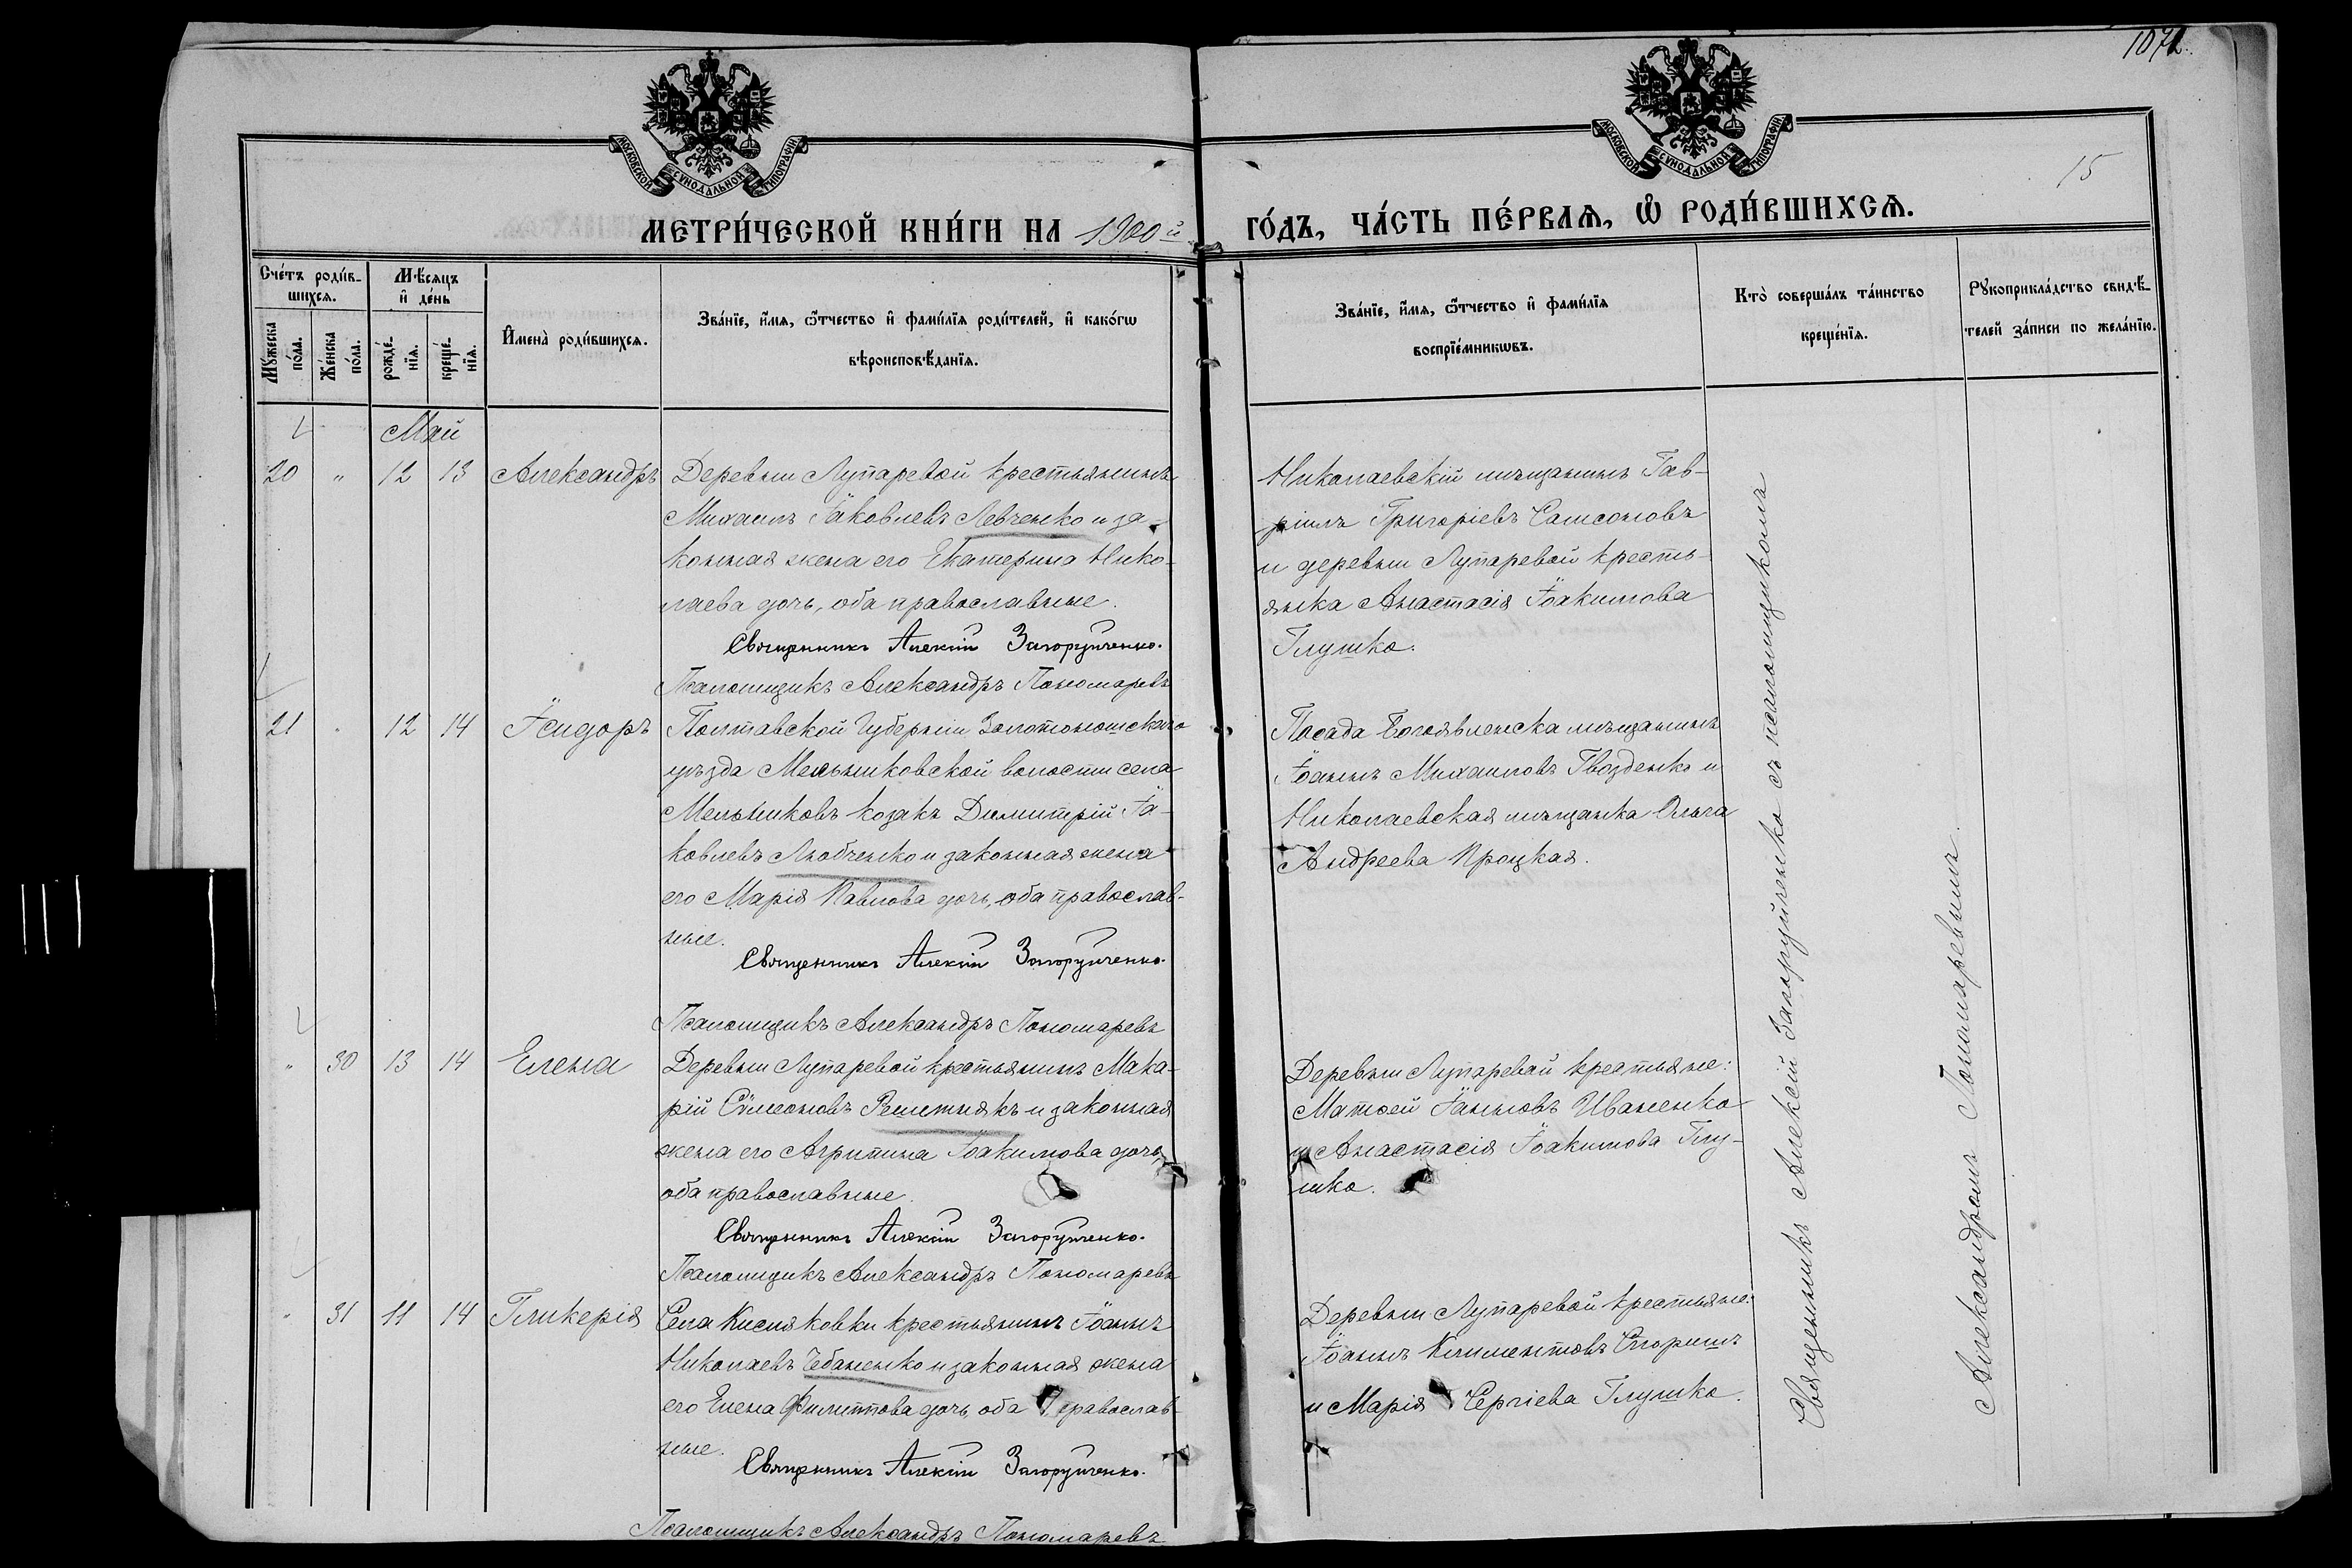 1072.
15
МОСКОВСКОЙ СѴНОДАЛЬНОЙ ТИПОГРАФІИ
МОСКОВСКОЙ СѴНОДАЛЬНОЙ ТИПОГРАФІИ
МЕТРИ́ЧЕСКОЙ КНИ́ГИ НА 1900 й
ГО́ДЪ, ЧА́СТЬ ПЕ́РВАЯ, Ѡ РОДИ́ВШИХСЯ.
Сче́тъ роди́в-
шихся.
Мꙋ́жеска
по́ла.
Же́нска
по́ла.
Мѣ́сяцъ
и҆ де́нь
рожде́-
нїя.
креще́-
нїя.
И҆мена̀ роди́вшихся.
Зва́нїе, и҆́мя, ѻ҆́тчество и҆ фами́лїя роди́телей, и҆ како́гѡ
вѣроисповѣ́данїя.
Зва́нїе, и҆́мя, ѻ҆́тчество и҆ фами́лїя
воспрїе́мникѡвъ.
Кто̀ соверша́лъ та́инство
креще́нїя.
Рꙋкоприкла́дство свидѣ́-
телей за́писи по жела́нїю.
Май
20 " 12 13 Александръ
Деревни Лупаревой крестьянинъ
Михаилъ Іаковлевъ Левченко и за-
конная жена его Екатерина Нико-
лаева дочь, оба православные.
Священникъ Алексій Загоруйченко.
Псаломщикъ Александръ Пономаревъ
Николаевскій мѣщанинъ Гав-
ріилъ Григоріевъ Самсоновъ
и деревни Лупаревой кресть-
янка Анастасія Іоакимова
Глушко.
21 " 12 14 Ісидоръ
Полтавской Губерніи Золотоношскаго
уѣзда Мельниковской волости села
Мельниковъ козакъ Димитрій Іа-
ковлевъ Любченко и законная жена
его Марія Павлова дочь, оба православ-
ные.
Священникъ Алексій Загоруйченко.
Псаломщикъ Александръ Пономаревъ
Посада Богоявленска мѣщанинъ
Іоаннъ Михаиловъ Гвозденко и
Николаевская мѣщанка Ольга
Андреева Процкая.
" 30 13 14 Елена
Деревни Лупаревой крестьянинъ Мака-
рій Сѵмеоновъ Решетнякъ и законная
жена его Агрипина Іоакимова дочь,
оба православные.
Священникъ Алексій Загоруйченко.
Псаломщикъ Александръ Пономаревъ
Деревни Лупаревой крестьяне:
Матѳей Іанновъ Иваненко
и Анастасія Іоакимова Глу-
шко.
" 31 11 14 Гликерія
Села Кисляковки крестьянинъ Іоаннъ
Николаевъ Чебаненко и законная жена
его Елена Филиппова дочь, оба православ-
ные.
Священникъ Алексій Загоруйченко.
Псаломщикъ Александръ Пономаревъ
Деревни Лупаревой крестьяне:
Іоаннъ Климентовъ
и Марія Сергіева Глушко.
Священникъ Алексій Загоруйченко съ псаломщикомъ
Александромъ Пономаревымъ.